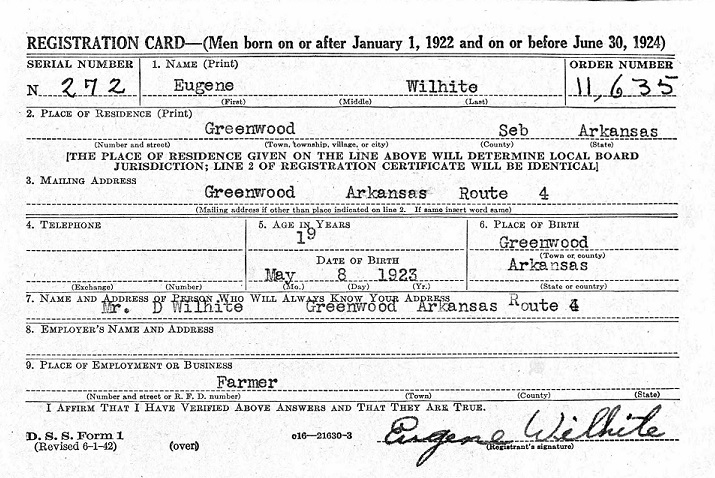 REGISTRATION CARD—(Men born on or after January 1, 1922 and on or before June 30, 1924)
SERIAL NUMBER 1. NAME (Print) ORDER NUMBER
N 272 Eugene Wilhite 11,635
(First) (Middle) (Last)
2. PLACE OF RESIDENCE (Print)
Greenwood Seb Arkansas
(Number and street) (Town, township, village, or city) (County) (State)
[THE PLACE OF RESIDENCE GIVEN ON THE LINE ABOVE WILL DETERMINE LOCAL BOARD
JURISDICTION; LINE 2 OF REGISTRATION CERTIFICATE WILL BE IDENTICAL]
3. MAILING ADDRESS
Greenwood Arkansas Route 4
(Mailing address if other than place indicated on line 2. If same insert word same)
4. TELEPHONE 5. AGE IN YEARS 6. PLACE OF BIRTH
19 Greenwood
(Town or county)
DATE OF BIRTH Arkansas
May 8 1923
(Exchange) (Number) (Mo.) (Day) (Yr.) (State or country)
7. NAME AND ADDRESS OF PERSON WHO WILL ALWAYS KNOW YOUR ADDRESS
Mr. D Wilhite Greenwood Arkansas Route 4
8. EMPLOYER'S NAME AND ADDRESS
9. PLACE OF EMPLOYMENT OR BUSINESS
Farmer
(Number and street or R. F. D. number) (Town) (County) (State)
I AFFIRM THAT I HAVE VERIFIED ABOVE ANSWERS AND THAT THEY ARE TRUE.
D. S. S. Form 1 c16—21630-3 Eugene Wilhite
(Revised 6-1-42) (over) (Registrant's signature)